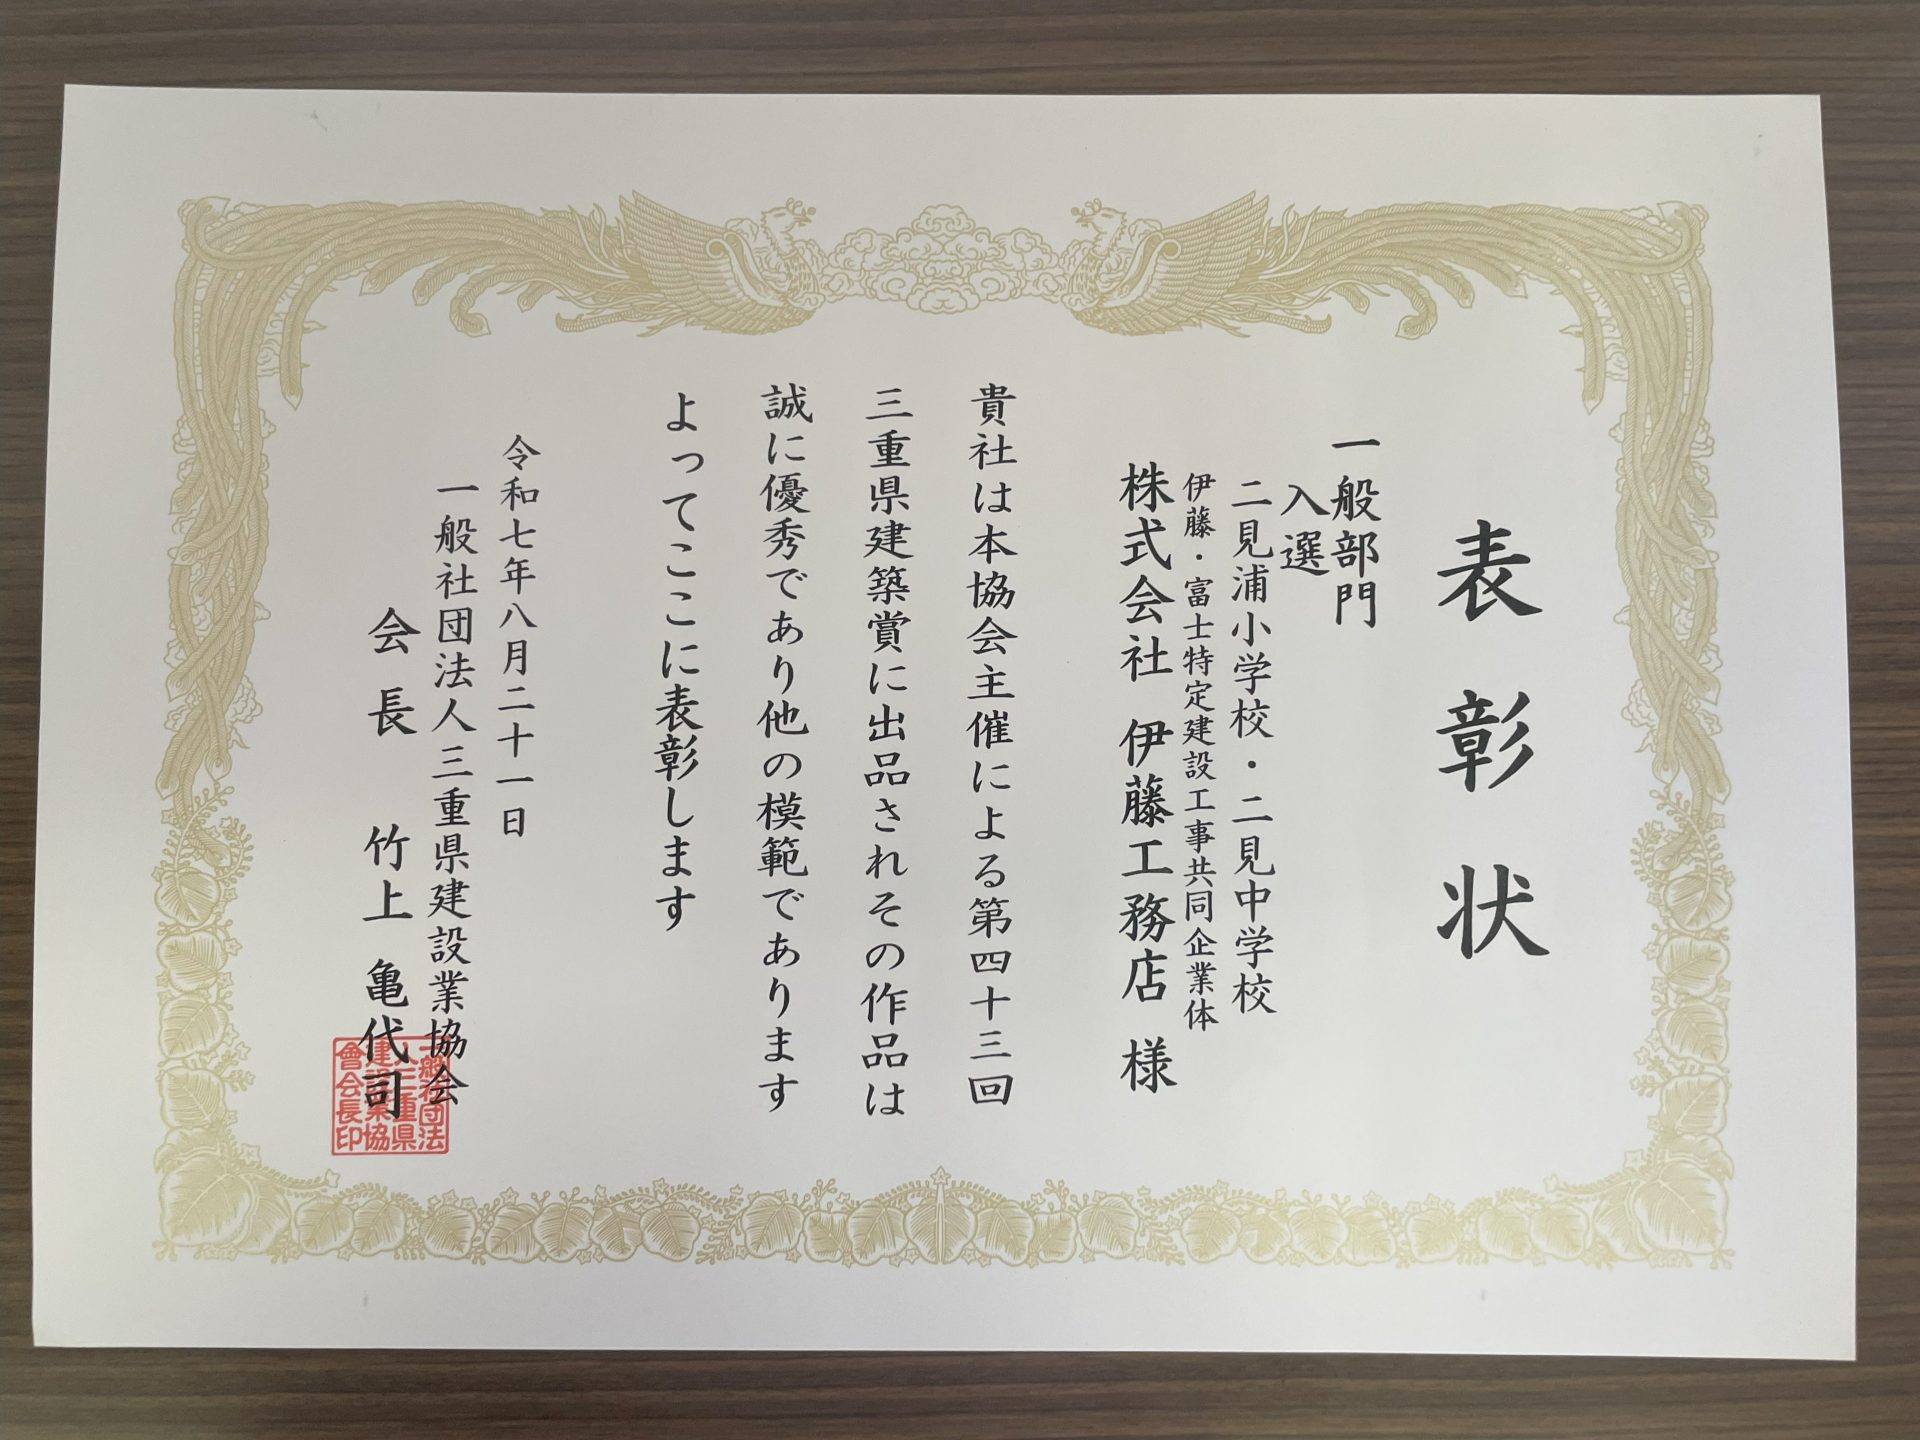 表彰状
一般部門
入選
二見浦小学校・二見中学校
伊藤・富士特定建設工事共同企業体
株式会社 伊藤工務店 様
貴社は本協会主催による第四十三回
三重県建築賞に出品されその作品は
誠に優秀であり他の模範であります
よってここに表彰します
令和七年八月二十一日
一般社団法人三重県建設業協会
会長 竹上 亀代司
一般社団法
人三重県
建設業協
會会長印